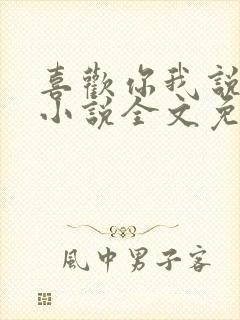 喜歡你我說
小說全文免
風中男子客